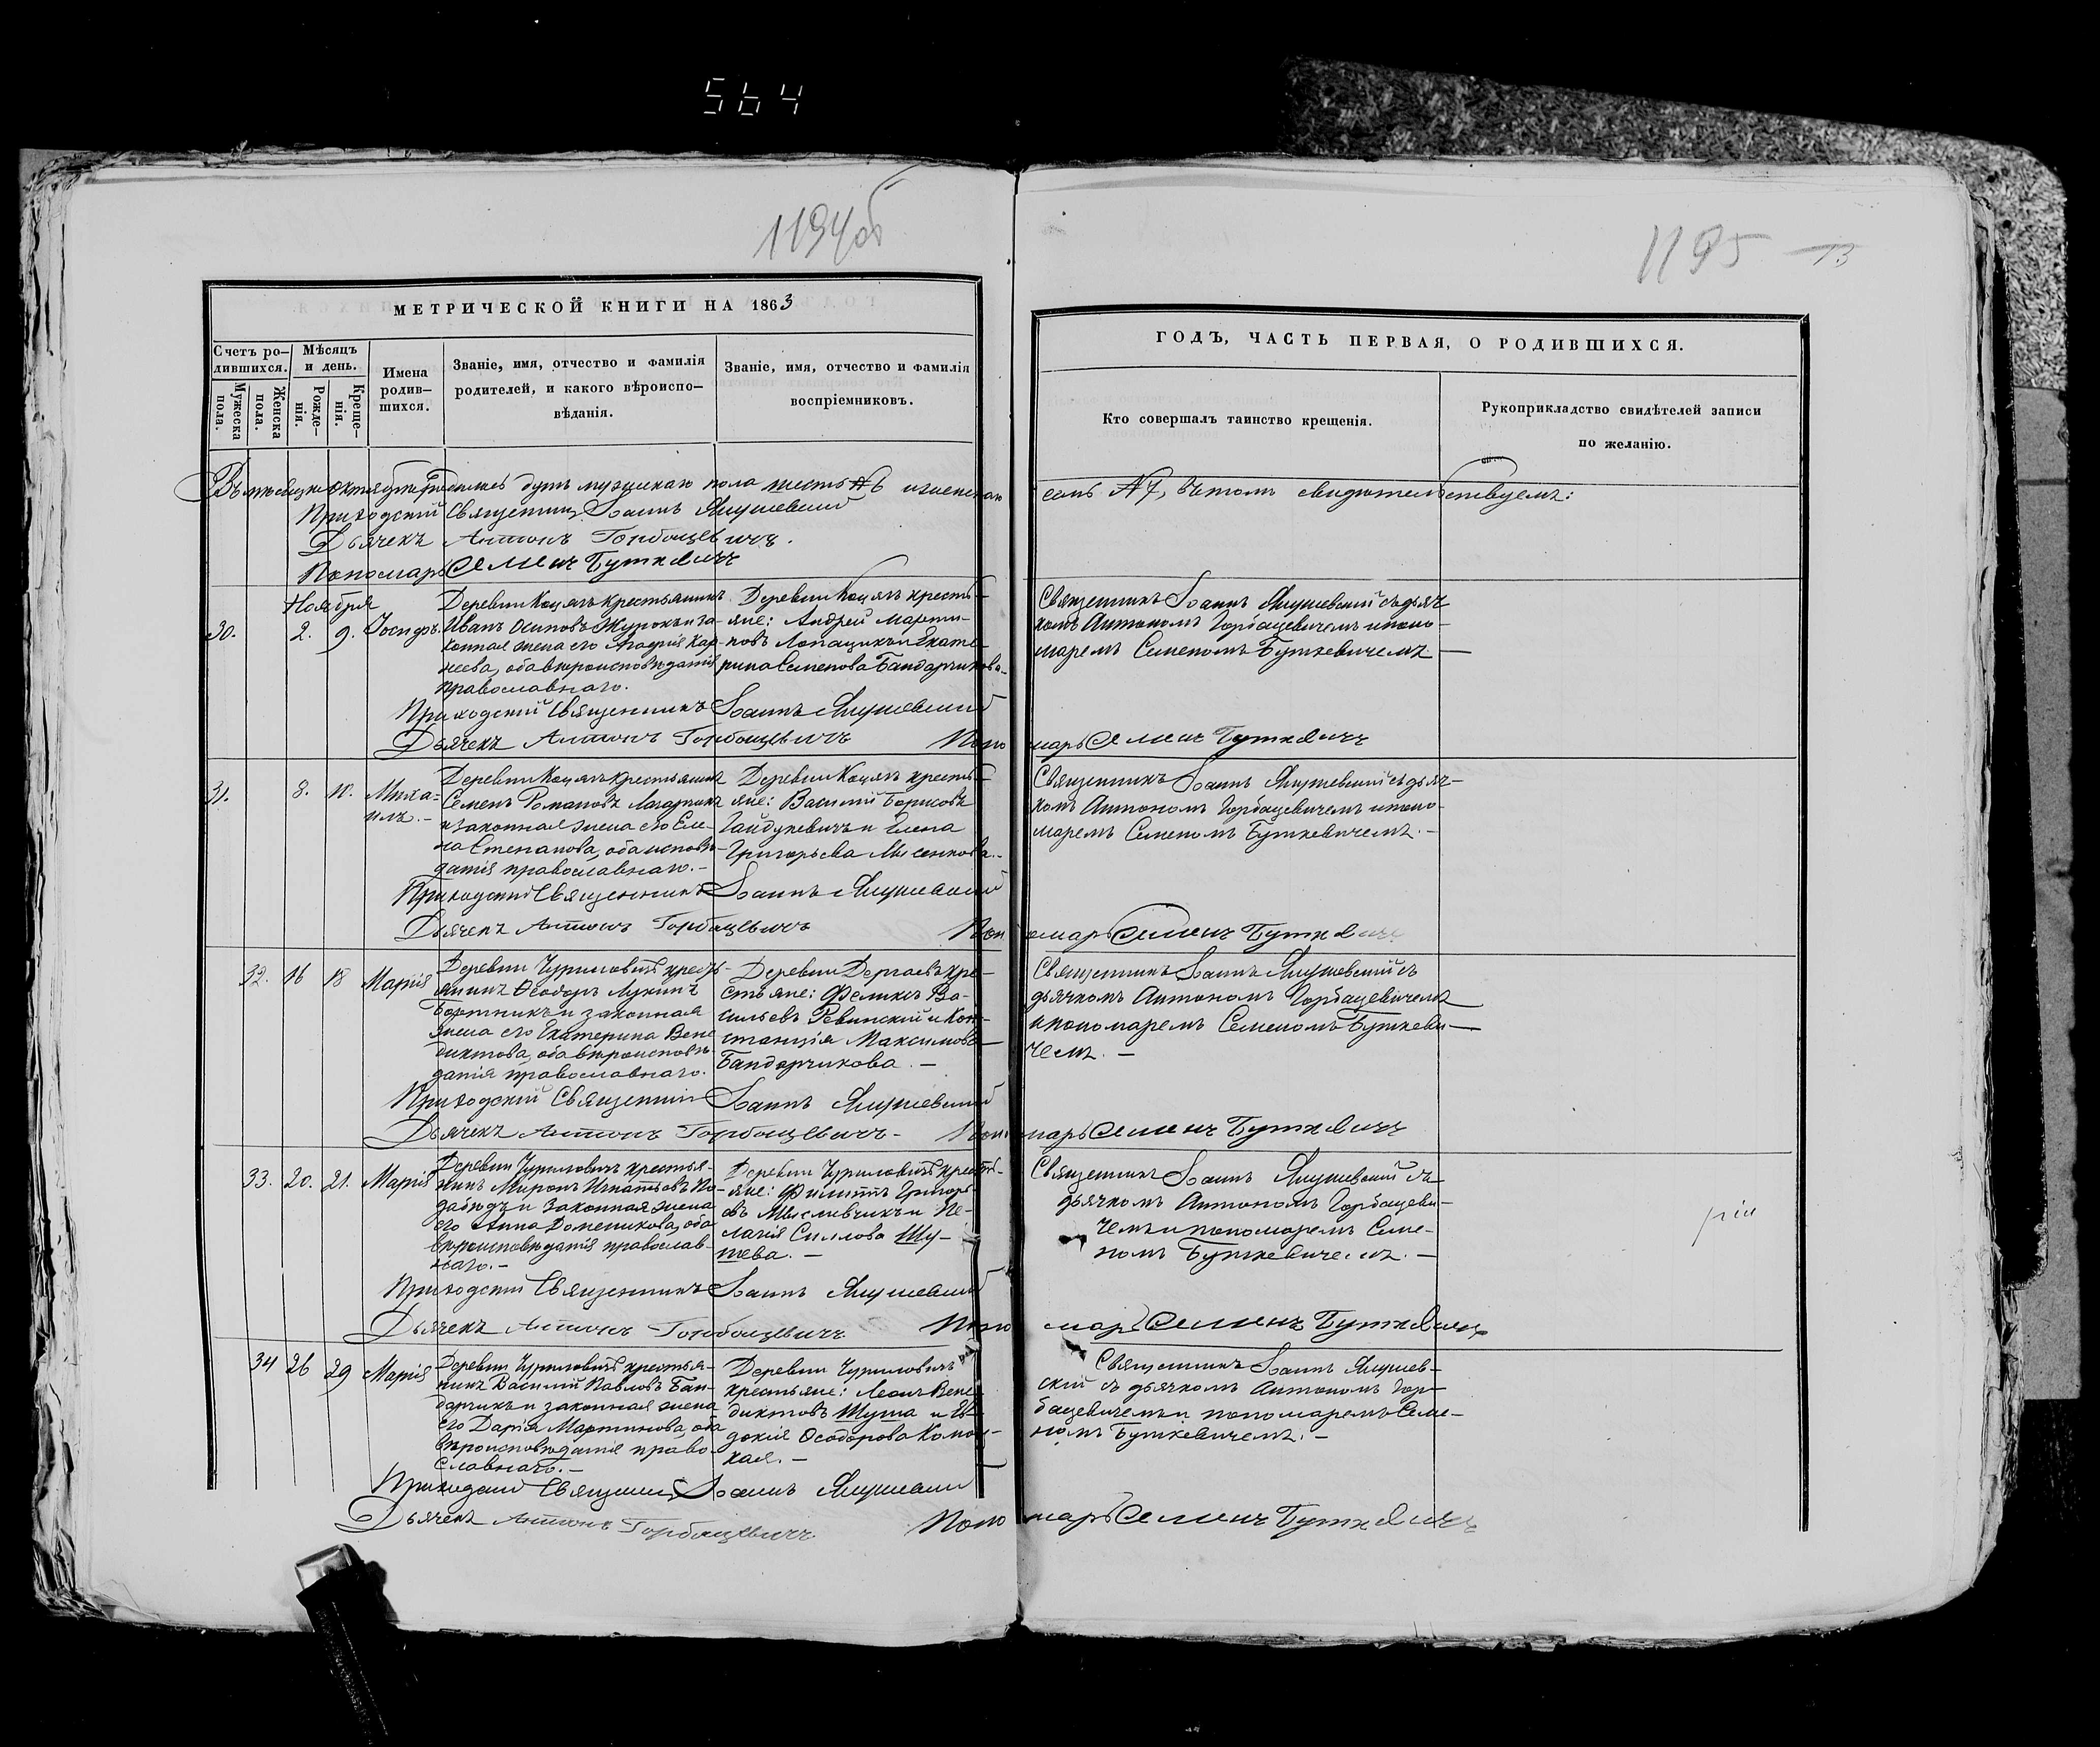 564
1194об
МЕТРИЧЕСКОЙ КНИГИ НА 1863
Счетъ ро-
дившихся.
Мужеска
пола.
Женска
пола.
Мѣсяцъ
и день.
Рожде-
нія.
Креще-
нія.
Имена
родив-
шихся.
Званіе, имя, отчество и фамилія
родителей, и какого вѣроиспо-
вѣданія.
Званіе, имя, отчество и фамилія
воспріемниковъ.
Въ мѣсяце Октябре родилось душъ мужескаго пола шесть 6 и женскаго
Приходскій Священникъ Іоаннъ
Дьячекъ Антонъ Горбацевичъ.
Пономарь Семенъ Буткевичъ
Ноября
30. 2. 9. Іосифъ.
Деревни Коцелъ крестьянинъ
Иванъ Осиповъ и за-
конная жена его
оба вѣроисповѣданія
православнаго.
Деревни Коцелъ кресть-
яне: Андрей Марти-
новъ Лопацикъ и Екате-
рина Семенова Бандарчикова.
Приходскій Священникъ Іоаннъ
Дьячекъ Антонъ Горбацевичъ Поно
31. 8. 10. Миха-
илъ.-
Деревни Коцелъ крестьянинъ
Семенъ Романовъ
и законная жена его Еле-
на Степанова, оба исповѣ-
данія православнаго.-
Деревни Коцелъ кресть-
яне: Василій Борисовъ
Гайдукевичъ и Елена
Григорьева
Приходскій Священникъ Іоаннъ
Дьячекъ Антонъ Горбацевичъ Пон
32. 16 18 Марія
Деревни Чуриловичъ кресть-
янинъ Ѳеодоръ Лукинъ
Бортникъ и законная
жена его Екатерина Вене
диктова, оба вѣроисповѣ-
данія православнаго.
Деревни Дергаевъ кре-
стьяне: Феликсъ Ва-
сильевъ Ревинскій и Кон-
станція Максимова
Бандарчикова. -
Приходскій Священникъ Іоаннъ
Дьячекъ Антонъ Горбацевичъ- Поно
33. 20. 21. Марія
Деревни Чуриловичъ крестья-
нинъ Миронъ Игнатьевъ
и законная жена
его Анна Доменикова, оба
вѣроисповѣданія православ-
наго.-
Деревни Чуриловичъ кресть-
яне: Филиппъ Григорь-
евъ Мысливчикъ и Пе-
лагія Силлова Шу-
тева. -
Приходскій Священникъ Іоаннъ
Дьячекъ Антонъ Горбацевичъ Поно
34 26 29 Марія
Деревни Чуриловичъ крестья-
нинъ Василій Павловъ Бан-
дарчикъ и законная жена
его Дарія Мартинова, оба
вѣроисповѣданія право-
славнаго.-
Деревни Чуриловичъ
крестьяне: Леонъ Вене-
диктовъ Шута и Ев-
докія Ѳеодорова
кая. -
Приходскій Священникъ Іоаннъ
Дьячекъ Антонъ Горбацевичъ Поно
1195
13
ГОДЪ, ЧАСТЬ ПЕРВАЯ, О РОДИВШИХСЯ.
Кто совершалъ таинство крещенія.
Рукоприкладство свидѣтелей записи
по желанію.
семь 7, въ томъ свидѣтельствуемъ:
Священникъ Іоаннъ съ дьяч-
комъ Антономъ Горбацевичемъ и поно-
маремъ Семеномъ Буткевичемъ. -
марь Семенъ Буткевичъ
Священникъ Іоаннъ съ дьяч-
комъ Антономъ Горбацевичемъ и поно-
маремъ Семеномъ Буткевичемъ. -
омарь Семенъ Буткевичъ
Священникъ Іоаннъ съ
дьячкомъ Антономъ Горбацевичемъ
и пономаремъ Семеномъ Буткеви-
чемъ. -
марь Семенъ Буткевичъ
Священникъ Іоаннъ съ
дьячкомъ Антономъ Горбацеви-
чемъ и пономаремъ Семе-
номъ Буткевичемъ. -
марь Семенъ Буткевичъ
Священникъ Іоаннъ
скій съ дьячкомъ Антономъ Гор-
бацевичемъ и пономаремъ Семе-
номъ Буткевичемъ. -
марь Семенъ Буткевичъ